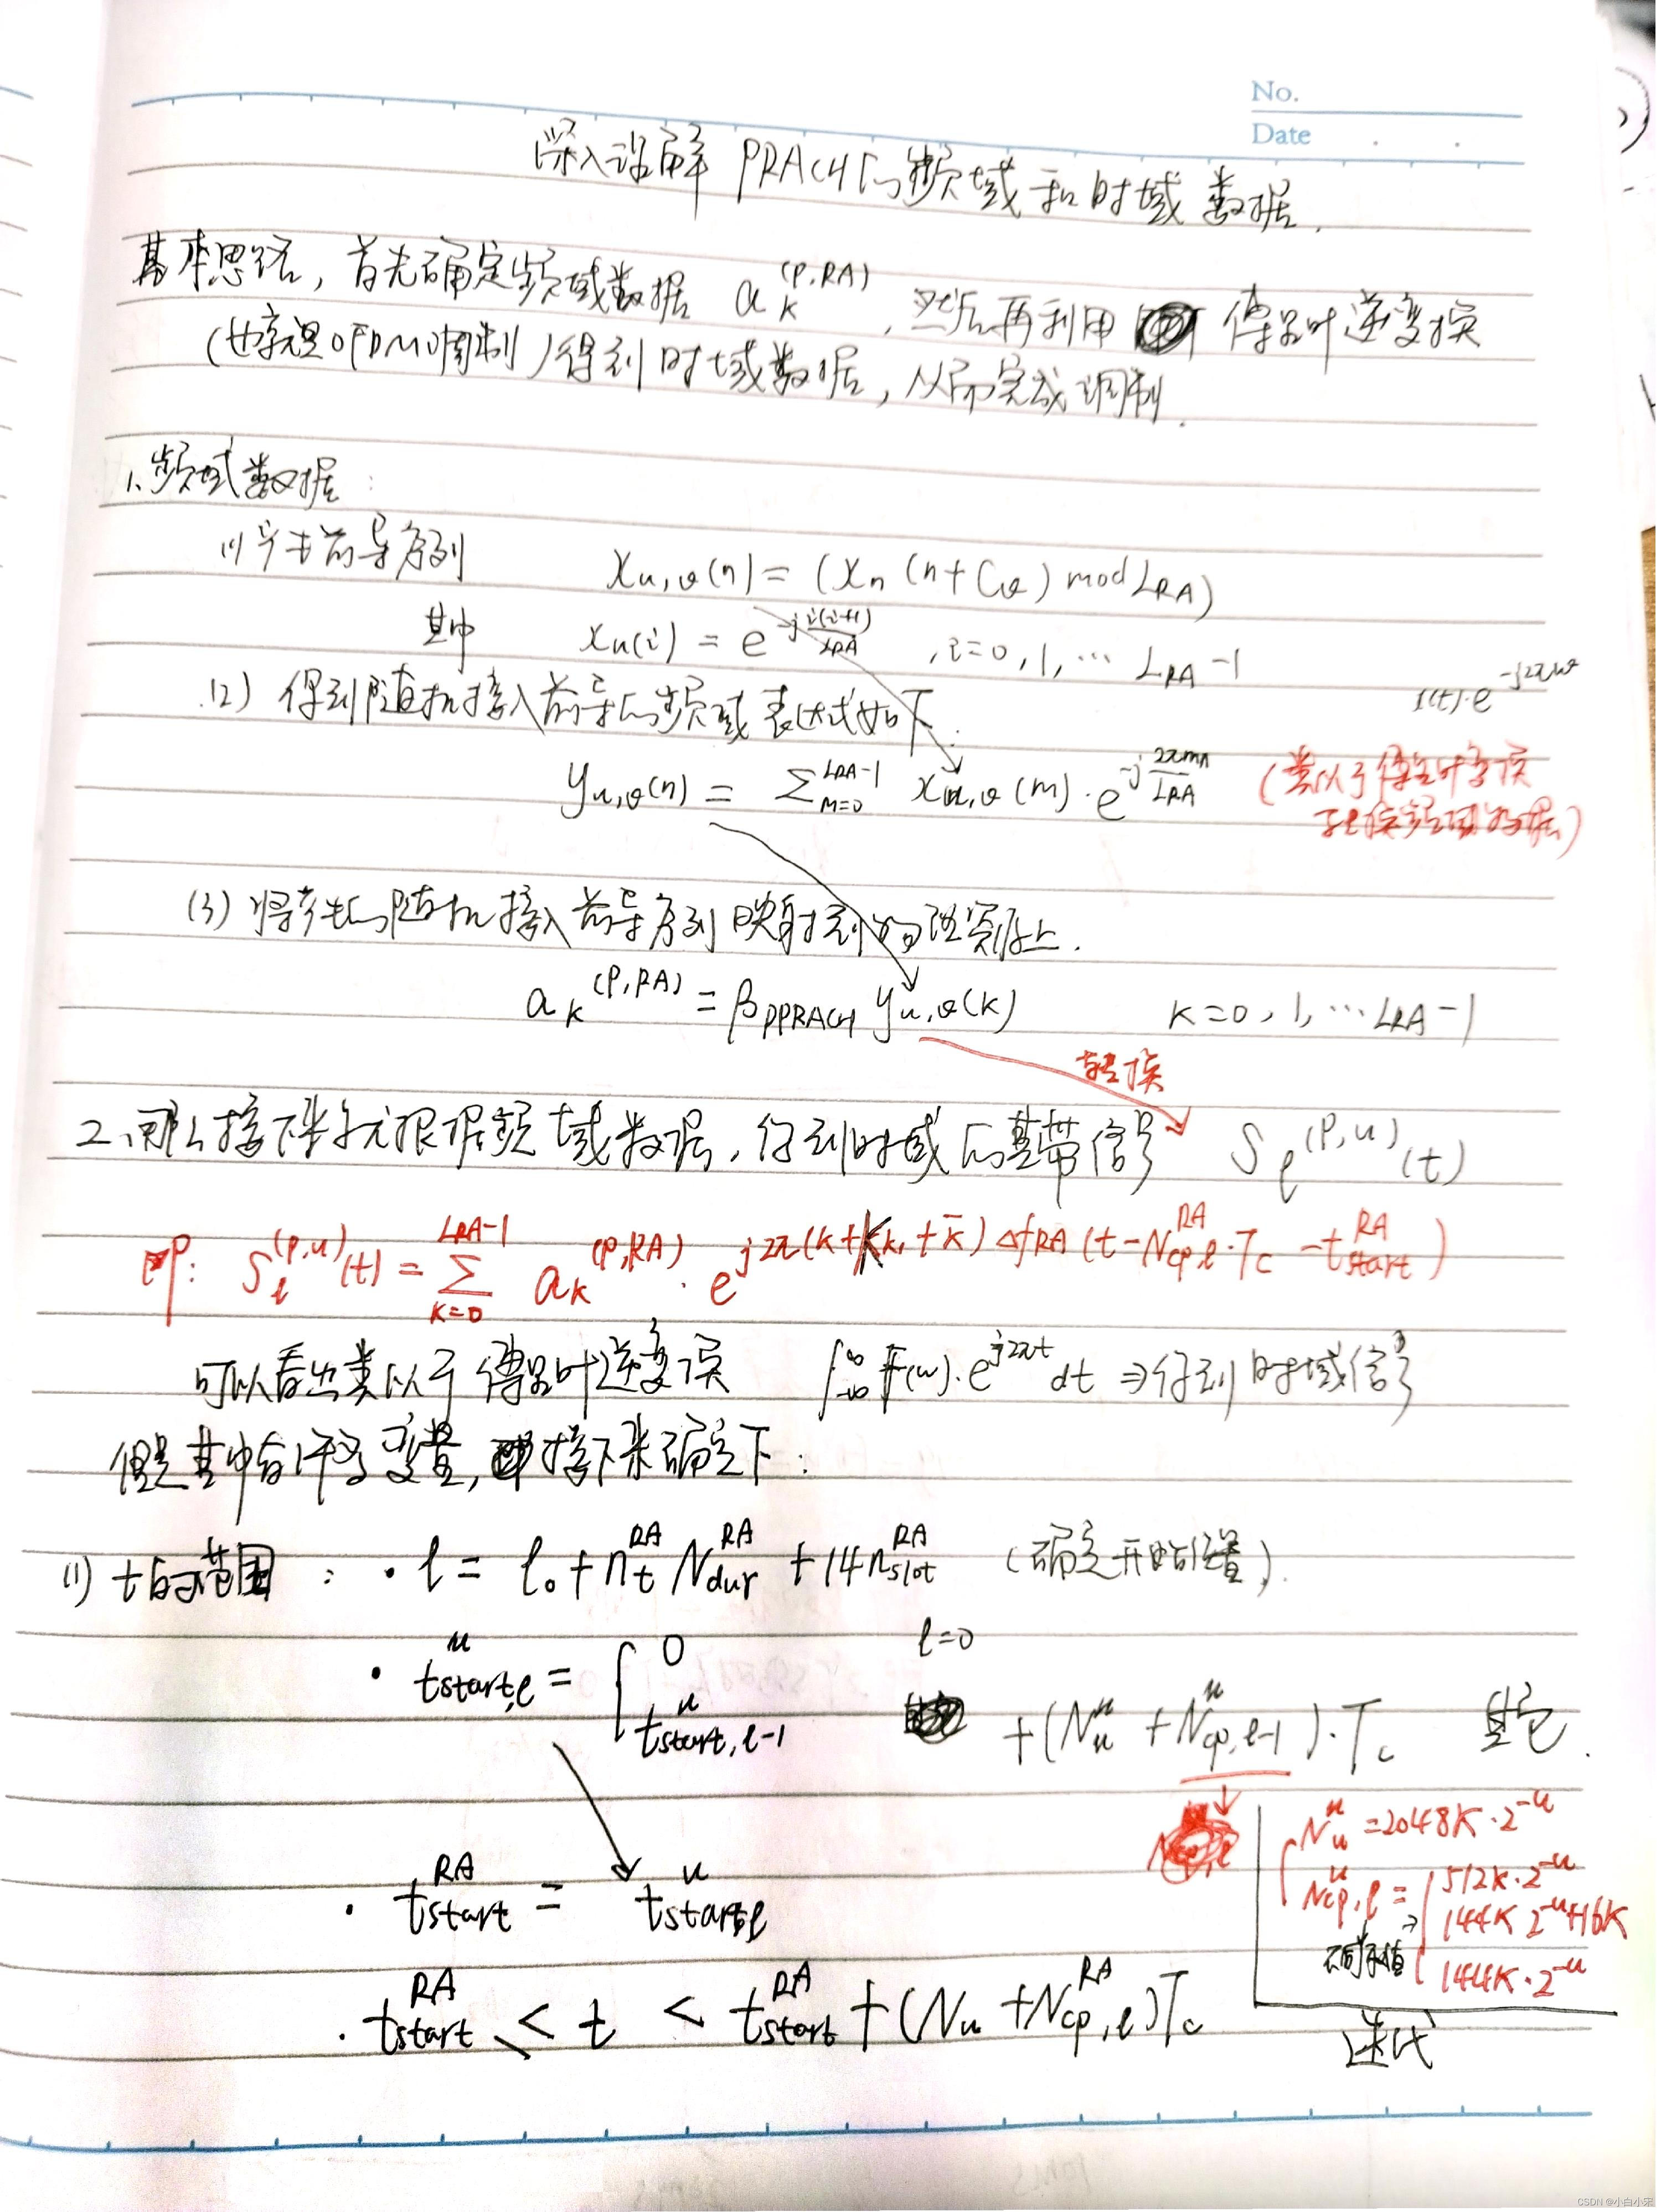 No.
Date
深入理解 PRACH的频域和时域数据.
基本思路, 首先确定频域数据 a_k^(P,RA), 然后再利用 傅里叶逆变换
(也就是OFDM调制)得到时域数据, 从而完成调制.
1.频域数据:
(1)产生前导序列 x_{u,v}(n) = (x_n (n+C_v) mod L_RA)
其中 x_u(i) = e^{-j i(i+1)/L_RA} , i=0,1,… L_RA-1
(2) 得到随机接入前导的频域表达式如下: e^{-j2π
y_{u,v}(n) = Σ_{m=0}^{L_RA-1} x_{u,v}(m)·e^{-j 2πmn/L_RA} (类似于傅里叶变换
频域数据)
(3) 将产生的随机接入前导序列映射到物理资源上.
a_k^(P,RA) = β_PPRACH y_{u,v}(k) K=0,1,…L_RA-1
转换
2.那么接下来就根据频域数据,得到时域的基带信号 S_l^(P,u)(t)
即: S_l^(P,u)(t) = Σ_{K=0}^{L_RA-1} a_k^(P,RA)·e^{j2π(k+Kk_1+k̄)Δf_RA(t-N_{cp,l}^{RA}·T_c-t_start^RA)}
可以看出类似于傅里叶逆变换 ∫_{-∞}^{∞} F(w)·e^{j2πt} dt ⇒得到时域信号
但是其中有许多变量, 接下来确定下:
(1) t的范围: · l = l_0 + n_t^RA N_dur^RA + 14n_slot^RA (确定开始位置).
· t_{start,l}^u = { 0 l=0
t_{start,l-1}^u +(N_u^u + N_{cp,l-1}^u)·T_c 其它.
N_u^u = 2048K·2^-u
N_{cp,l}^u = { 512K·2^-u
144K·2^-u+16K
不同取值 144K·2^-u
· t_start^RA = t_{start,l}^u
· t_start^RA ≤ t < t_start^RA + (N_u + N_{cp,l}^RA)T_c
迭代
CSDN @小白小宋